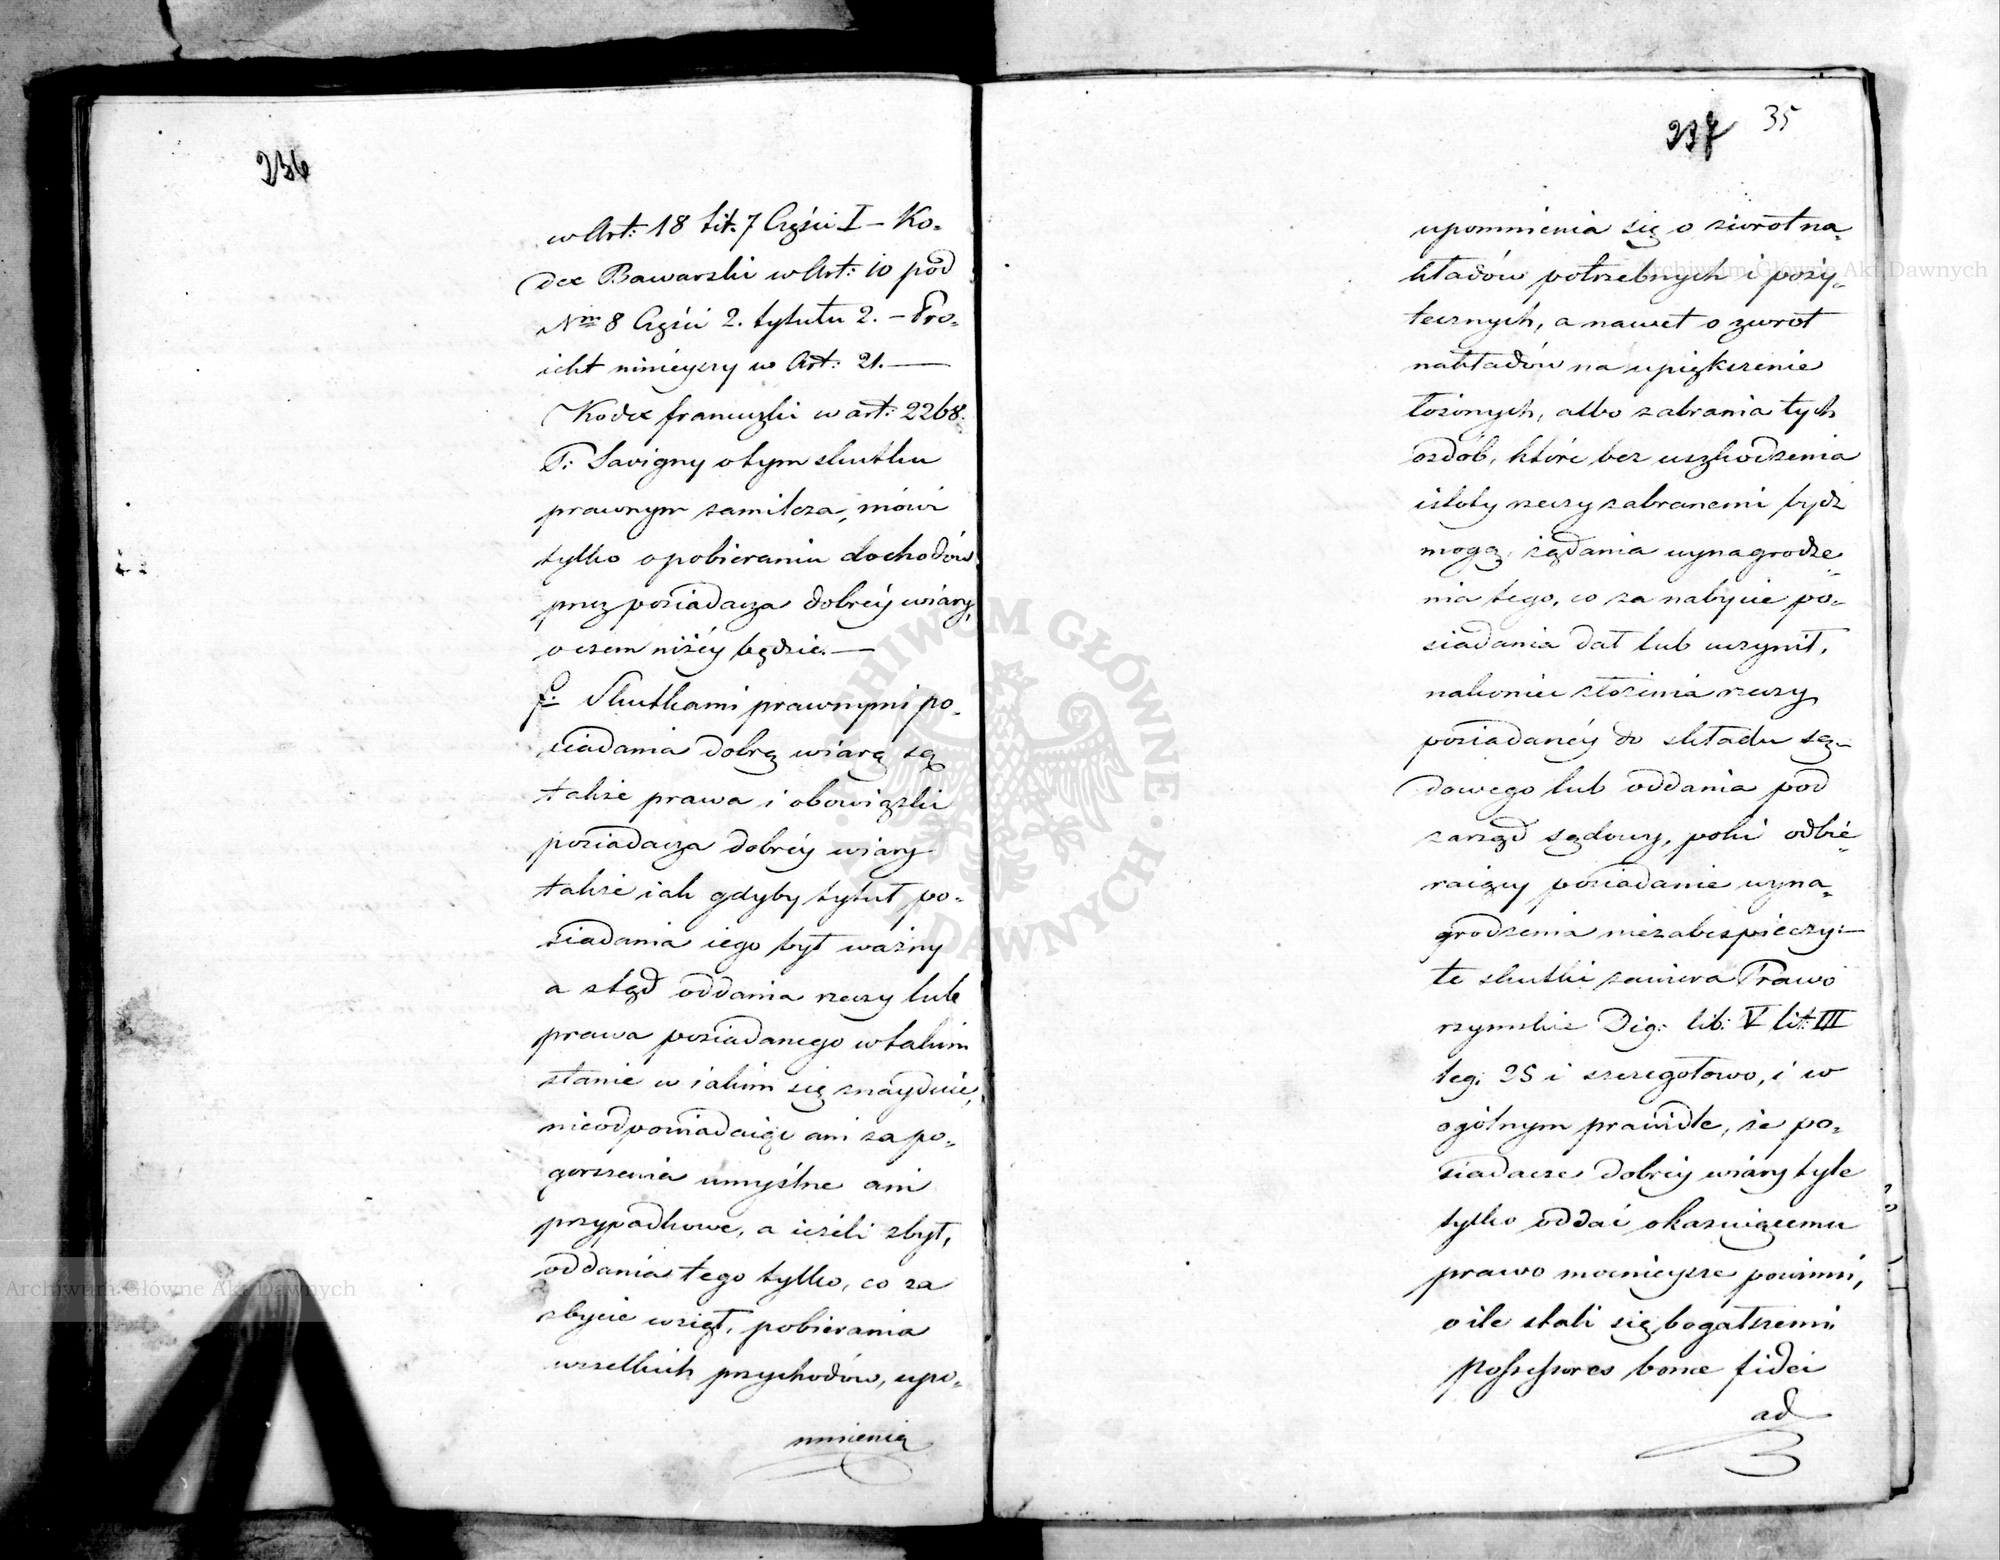 236
w Art: 18 tit. 7 Części I – Ko-
dex Bawarski w Art: 10 pod
Nrm 8 Części 2. tytułu 2. – Pro-
iekt ninieyszy w Art: 21. —
Kodex francuzki w art: 2268.
P: Savigny o tym skutku
prawnym zamilcza, mówi
tylko o pobieraniu dochodów
przez posiadacza dobréy wiary,
o czem niżéy będzie. —
f. Skutkami prawnymi po-
siadania dobrą wiarą są
także prawa i obowiązki
posiadacza dobréy wiary
takie iak gdyby tytuł po-
siadania iego był ważny
a stąd oddania rzeczy lub
prawa posiadanego w takim
stanie w iakim się znayduie,
nieodpowiadaiąc ani za po-
gorszenia umyślne ani
przypadkowe, a ieżeli zbył,
oddania tego tylko, co za
zbycie wziął, pobierania
wszelkich przychodów, upo-
mnienia
237 35
upomnienia się o zwrot na-
kładów potrzebnych i poży-
tecznych, a nawet o zwrot
nakładów na upiększenie
łożonych, albo zabrania tych
ozdób, które bez uszkodzenia
istoty rzeczy zabranemi bydź
mogą, żądania wynagrodze-
nia tego, co za nabycie po-
siadania dał lub uczynił,
nakoniec złożenia rzeczy
posiadanéy do składu są-
dowego lub oddania pod
zarząd sądowy, póki odbie-
raiący posiadanie wyna-
grodzenia niezabespieczy: —
te skutki zawiera Prawo
rzymskie Dig: lib: V tit: III
leg. 25 i szczegółowo, i w
ogólnym prawidle, że po-
siadacze dobréy wiary tyle
tylko oddać okazuiącemu
prawo mocnieysze powinni,
o ile stali się bogatszemi
possessores bonae fidei
ad
Archiwum Główne Akt Dawnych
Archiwum Główne Akt Dawnych
ARCHIWUM GŁÓWNE AKT DAWNYCH